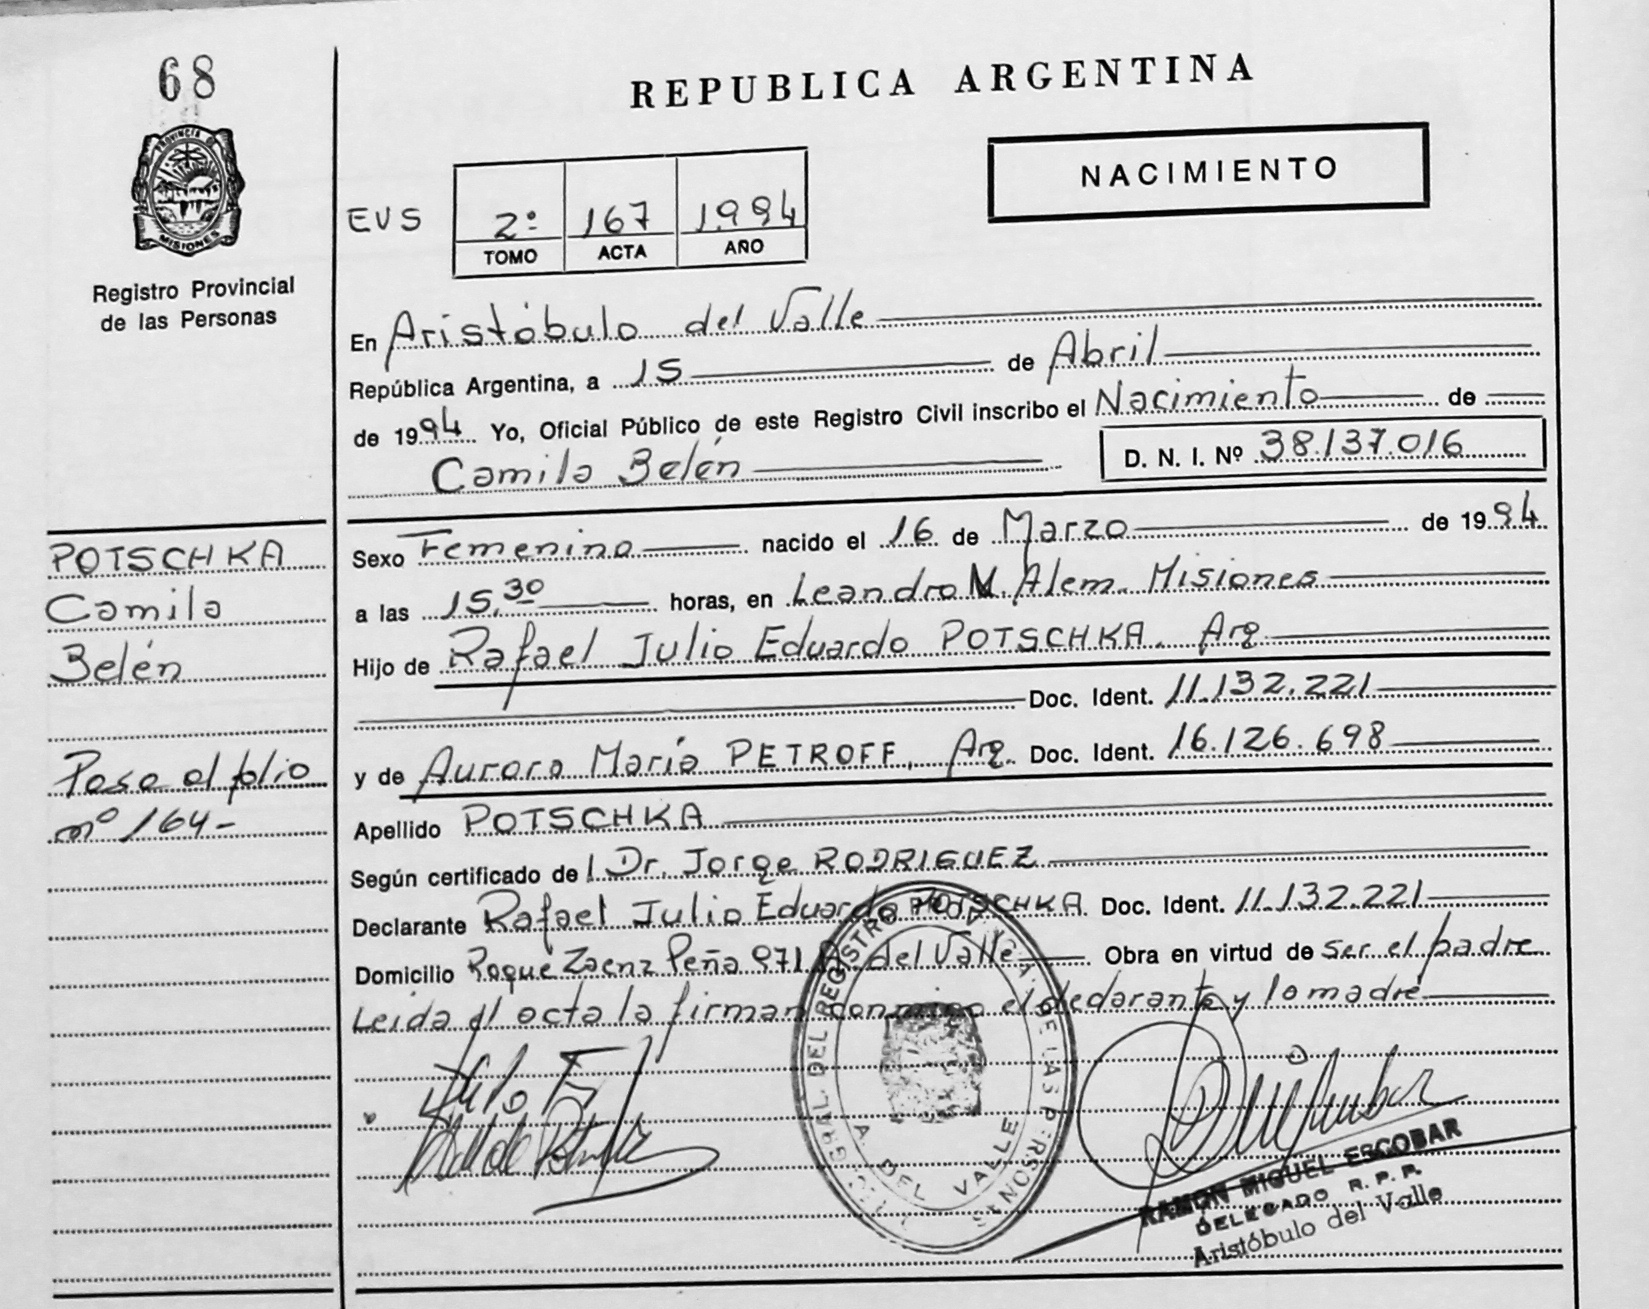 68
REPUBLICA ARGENTINA
PROVINCIA DE
MISIONES
Registro Provincial
de las Personas
NACIMIENTO
EVS
2º 167 1.994
TOMO ACTA AÑO
En Aristóbulo del Valle
República Argentina, a 15 de Abril
de 1994 Yo, Oficial Público de este Registro Civil inscribo el Nacimiento de
Camila Belén D. N. I. Nº 38.137.016
POTSCHKA
Camila
Belén
Pasa al folio
nº 164-
Sexo Femenino nacido el 16 de Marzo de 1994
a las 15,30 horas, en Leandro N. Alem. Misiones
Hijo de Rafael Julio Eduardo POTSCHKA. Arg.
Doc. Ident. 11.132.221
y de Aurora María PETROFF, Arg. Doc. Ident. 16.126.698
Apellido POTSCHKA
Según certificado de l Dr. Jorge RODRIGUEZ
Declarante Rafael Julio Eduardo POTSCHKA Doc. Ident. 11.132.221
Domicilio Roque Zaenz Peña 971 A. del Valle Obra en virtud de ser el padre
Leida el acta la firman conmigo el declarante y la madre
GRAL. DEL REGISTRO PROVINCIAL DE LAS PERSONAS
A. DEL VALLE
RAMON MIGUEL ESCOBAR
DELEGADO R. P. P.
Aristóbulo del Valle